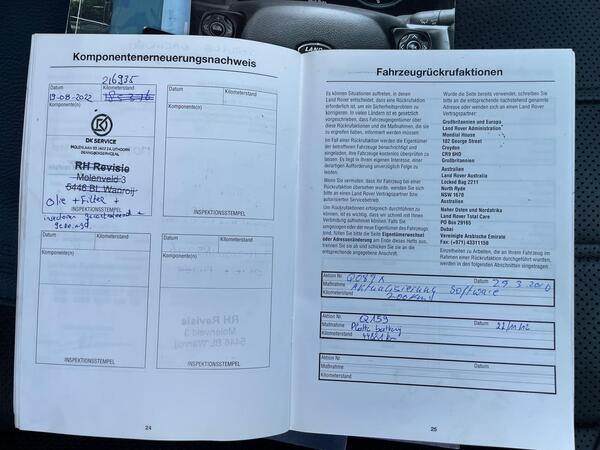 LAND
Komponentenerneuerungsnachweis
216935
Datum
Kilometerstand
19-08-2022
Komponente(n)
DK SERVICE
RH Revisie
Molenveld 3
5446 BL Wanroij
Olie + Filter +
INSPEKTIONSSTEMPEL
Datum
Kilometerstand
Komponente(n)
INSPEKTIONSSTEMPEL
Datum
Kilometerstand
Komponente(n)
INSPEKTIONSSTEMPEL
Datum
Kilometerstand
Komponente(n)
RH Revisie
Molenveld 3
5446 BL Wanroij
INSPEKTIONSSTEMPEL
24
Fahrzeugrückrufaktionen
Es können Situationen auftreten, in denen
Land Rover entscheidet, dass eine Rückrufaktion
erforderlich ist, um ein Sicherheitsproblem
zu korrigieren. In vielen Ländern ist es gesetzlich
vorgeschrieben, dass Fahrzeugeigentümer über
diese Rückrufaktionen und die Maßnahmen, die sie
zu ergreifen haben, informiert werden müssen.
Im Fall einer Rückrufaktion werden die Eigentümer
der betroffenen Fahrzeuge benachrichtigt und
eingeladen, ihre Fahrzeuge kostenlos überprüfen zu
lassen. Es liegt in Ihrem eigenen Interesse, einer
derartigen Aufforderung unverzüglich Folge zu
leisten.
Wenn Sie vermuten, dass Ihr Fahrzeug bei einer
Rückrufaktion übersehen wurde, wenden Sie sich
bitte an einen Land Rover Vertragspartner bzw.
autorisierten Servicebetrieb.
Um Rückrufaktionen erfolgreich durchführen zu
können, ist es wichtig, dass wir schnell mit Ihnen
Verbindung aufnehmen können. Falls Sie
umziehen oder der neue Eigentümer des Fahrzeuges
sind, füllen Sie bitte die Seite Eigentümerwechsel
oder Adressenänderung am Ende dieses Hefts aus,
trennen Sie sie ab und schicken Sie sie an die
entsprechende angegebene Anschrift.
Wurde die Seite bereits verwendet, schreiben Sie
bitte an die entsprechende nächstehend genannte
Adresse oder wenden Sie sich an einen Land Rover
Vertragspartner:
Großbritannien und Europa
Land Rover Administration
Mondial House
102 George Street
Croydon
CR9 6HD
Großbritannien
Australien
Land Rover Australia
Locked Bag 2211
North Ryde
NSW 1670
Australien
Naher Osten und Nordafrika
Land Rover Total Care
PO Box 29165
Dubai
Vereinigte Arabische Emirate
Fax: (+971) 43311150
Einzelheiten zu Arbeiten, die an Ihrem Fahrzeug im
Rahmen einer Rückrufaktion durchgeführt wurden,
werden in den folgenden Abschnitten eingetragen.
Aktion Nr.
Datum
Maßnahme
Aktualisierung Software
Kilometerstand
Aktion Nr. Q159
Datum
Maßnahme
Kilometerstand
Aktion Nr.
Maßnahme
Datum
Kilometerstand
25